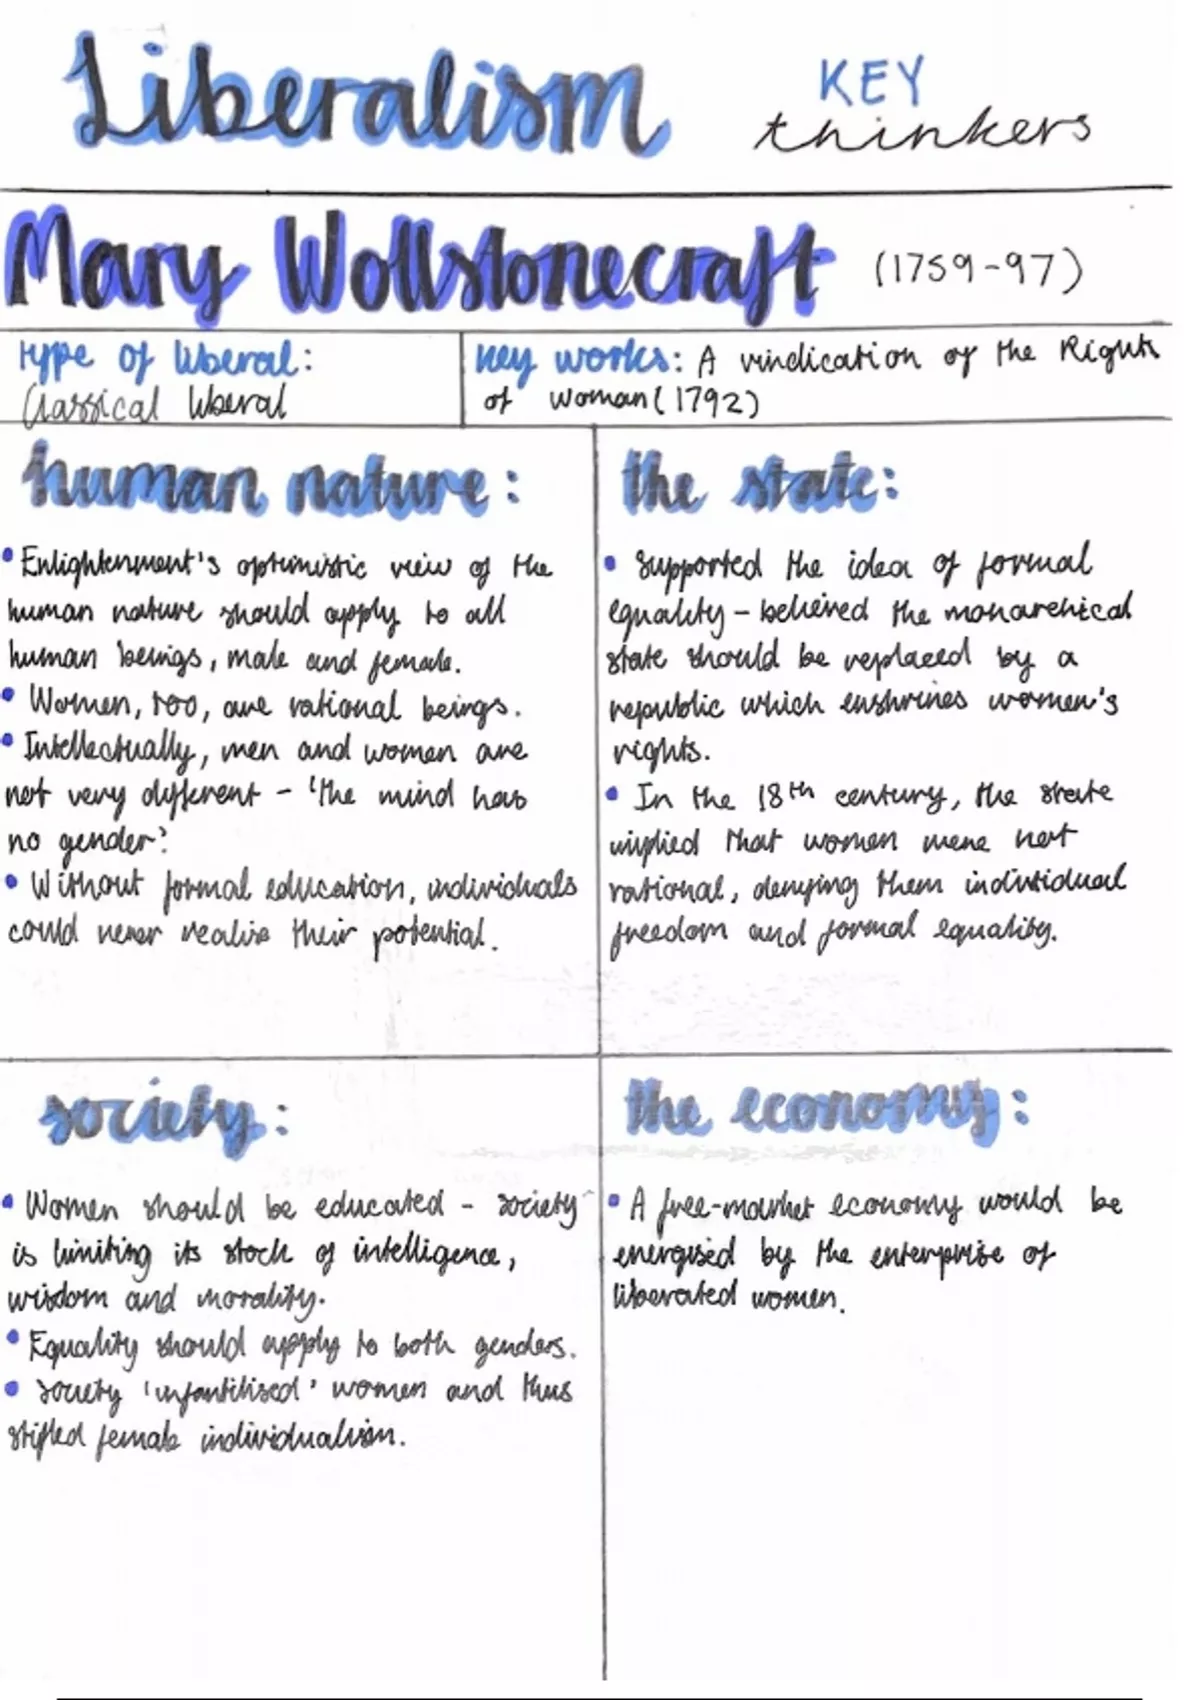 Liberalism
KEY
thinkers
Mary Wollstonecraft (1759-97)
type of liberal:
Classical liberal
key works: A vindication of the Rights
of Woman (1792)
human nature:
• Enlightenment's optimistic view of the
human nature should apply to all
human beings, male and female.
• Women, too, are rational beings.
• Intellectually, men and women are
not very different - 'the mind has
no gender'.
• Without formal education, individuals
could never realise their potential.
the state:
• Supported the idea of formal
equality - believed the monarchical
state should be replaced by a
republic which enshrines women's
rights.
• In the 18th century, the state
implied that women were not
rational, denying them individual
freedom and formal equality.
society:
• Women should be educated - society
is limiting its stock of intelligence,
wisdom and morality.
• Equality should apply to both genders.
• society 'infantilised' women and thus
stifled female individualism.
the economy:
• A free-market economy would be
energised by the enterprise of
liberated women.